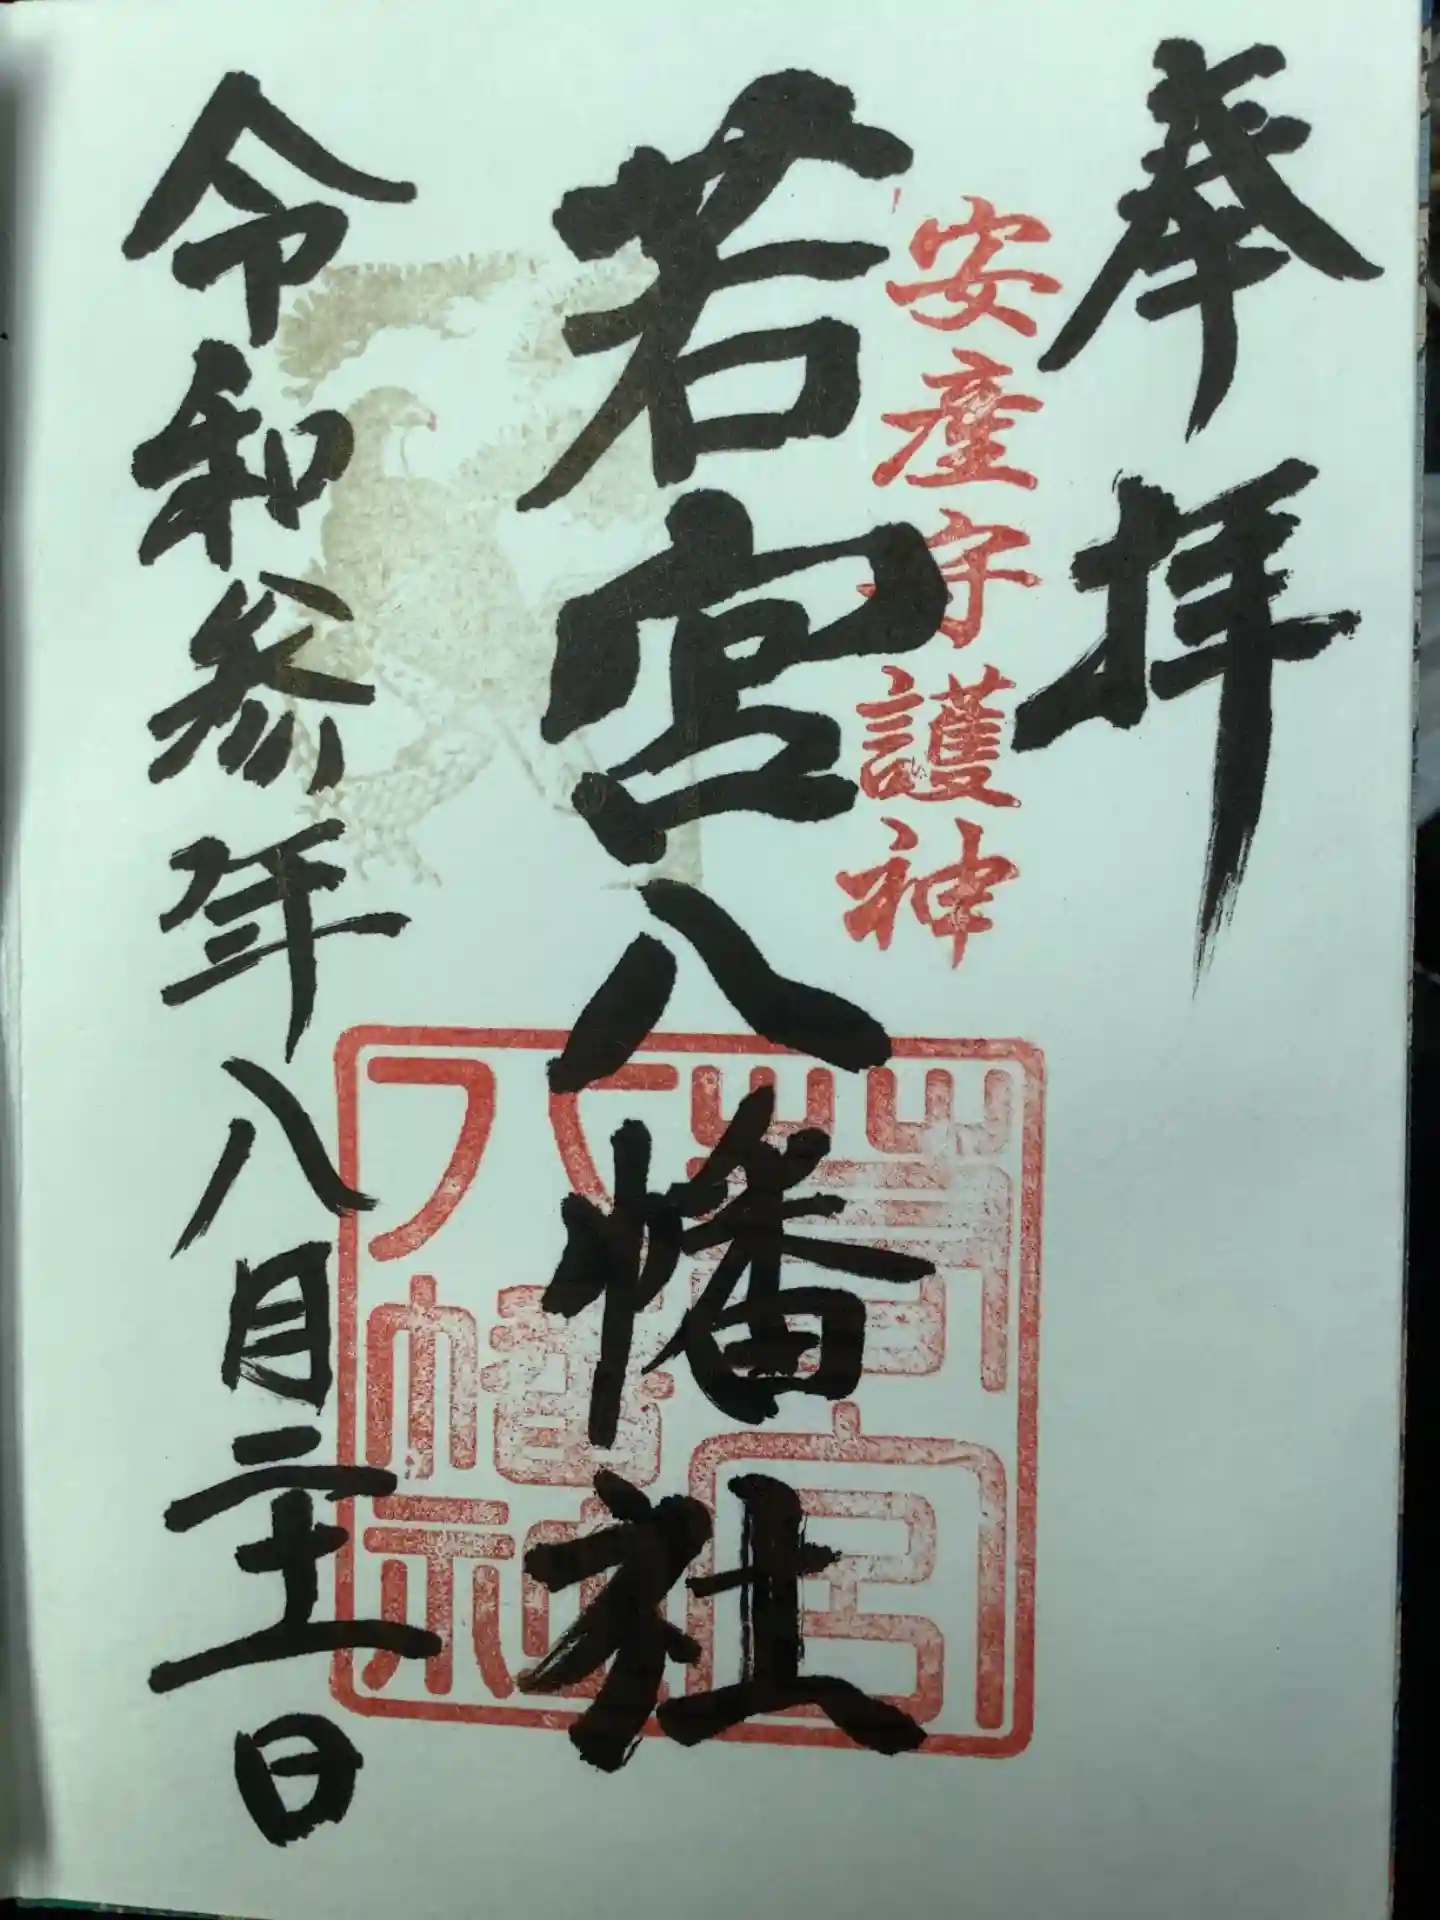 奉拝
安産守護神
若宮八幡社
令和参年八月二十一日
若宮
八幡神